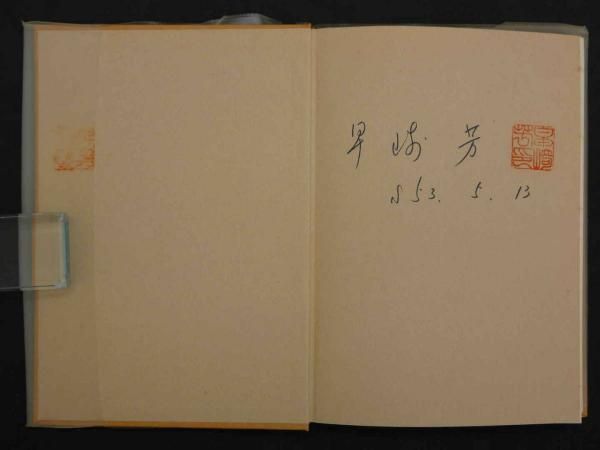 早崎 芳
S53. 5. 13